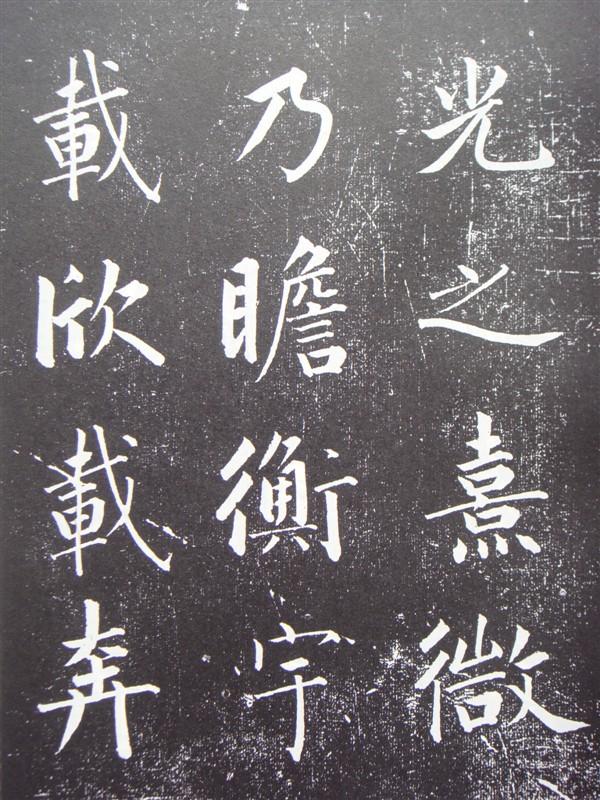 光之熹微
乃瞻衡宇
載欣載奔